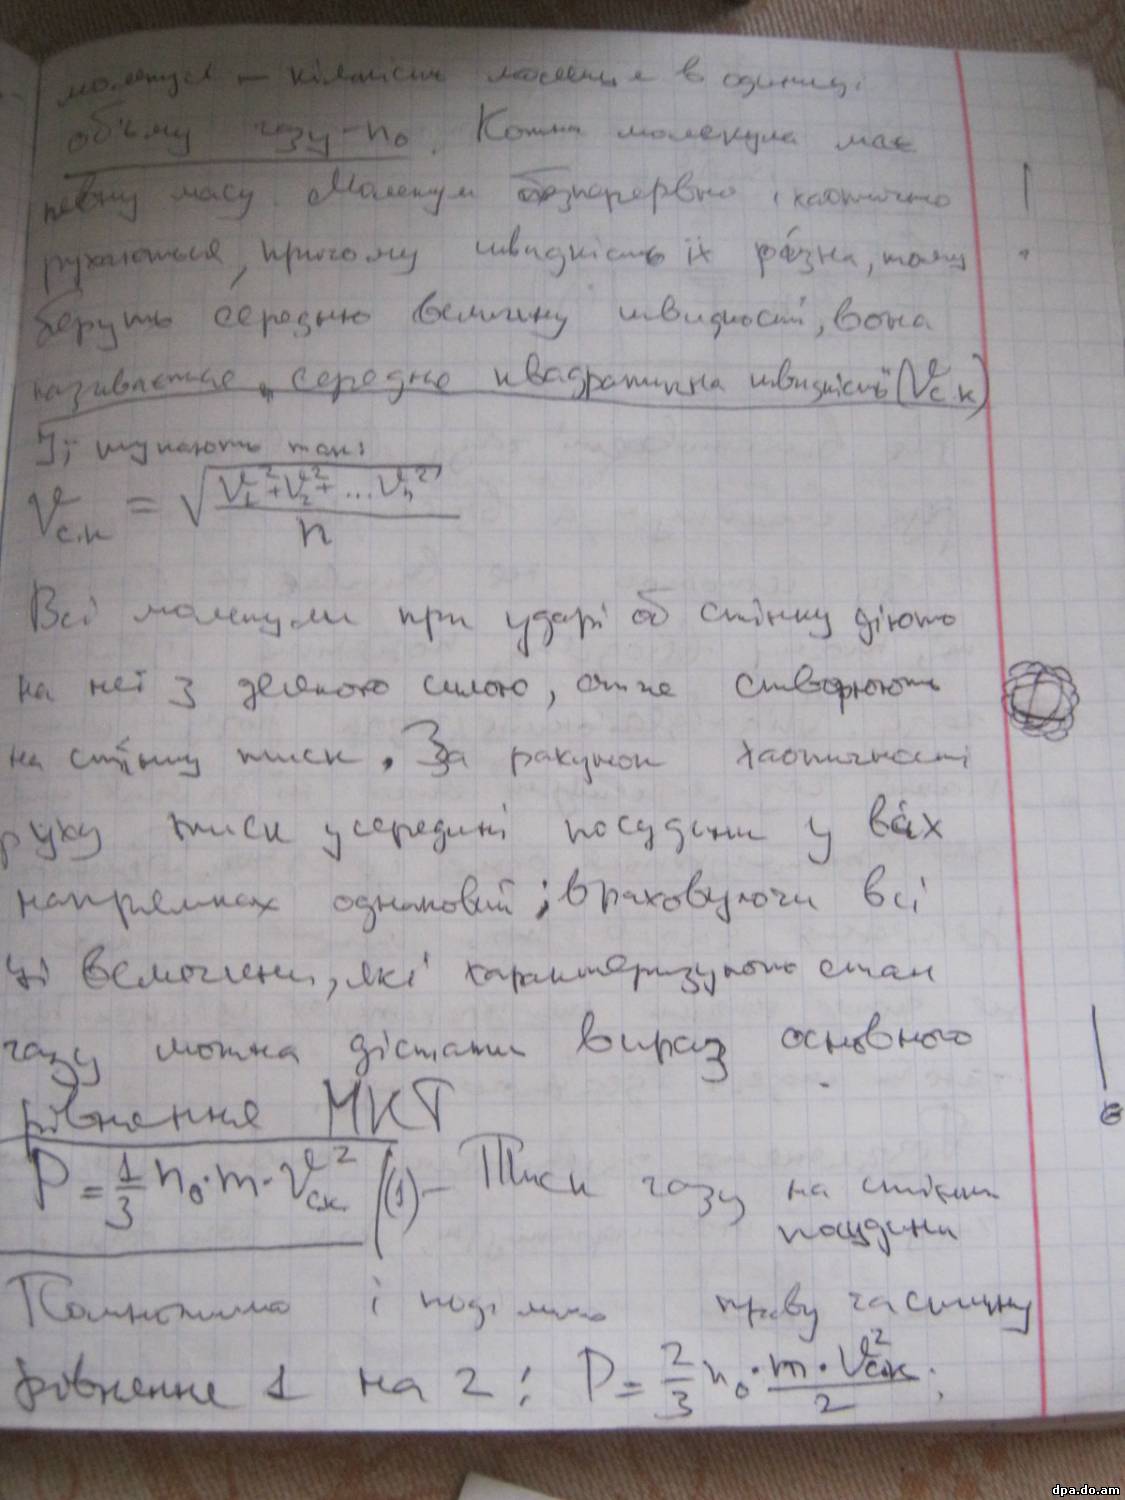 молекул – кількість молекул в одиниці
об'єму газу – n₀. Кожна молекула має
певну масу. Молекули безперервно і хаотично
рухаються, причому швидкість їх різна, тому
беруть середню величину швидкості, вона
називається „середнє квадратична швидкість" (Vс.к)
Її шукають так:
Vс.к = √(V₁²+V₂²+...Vn²)/n
Всі молекули при ударі об стінку діють
на неї з деякою силою, отже створюють
на стінку тиск. За рахунок хаотичності
руху тиск усередині посудини у всіх
напрямках однаковий; враховуючи всі
ці величини, які характеризують стан
газу можна дістати вираз основного
рівняння МКТ
P = 1/3 n₀·m·Vск² (1) – Тиск газу на стінки
посудини
Помножимо і поділимо праву частину
рівняння 1 на 2: P = 2/3 n₀·m·Vс.к²/2;
dpa.do.am